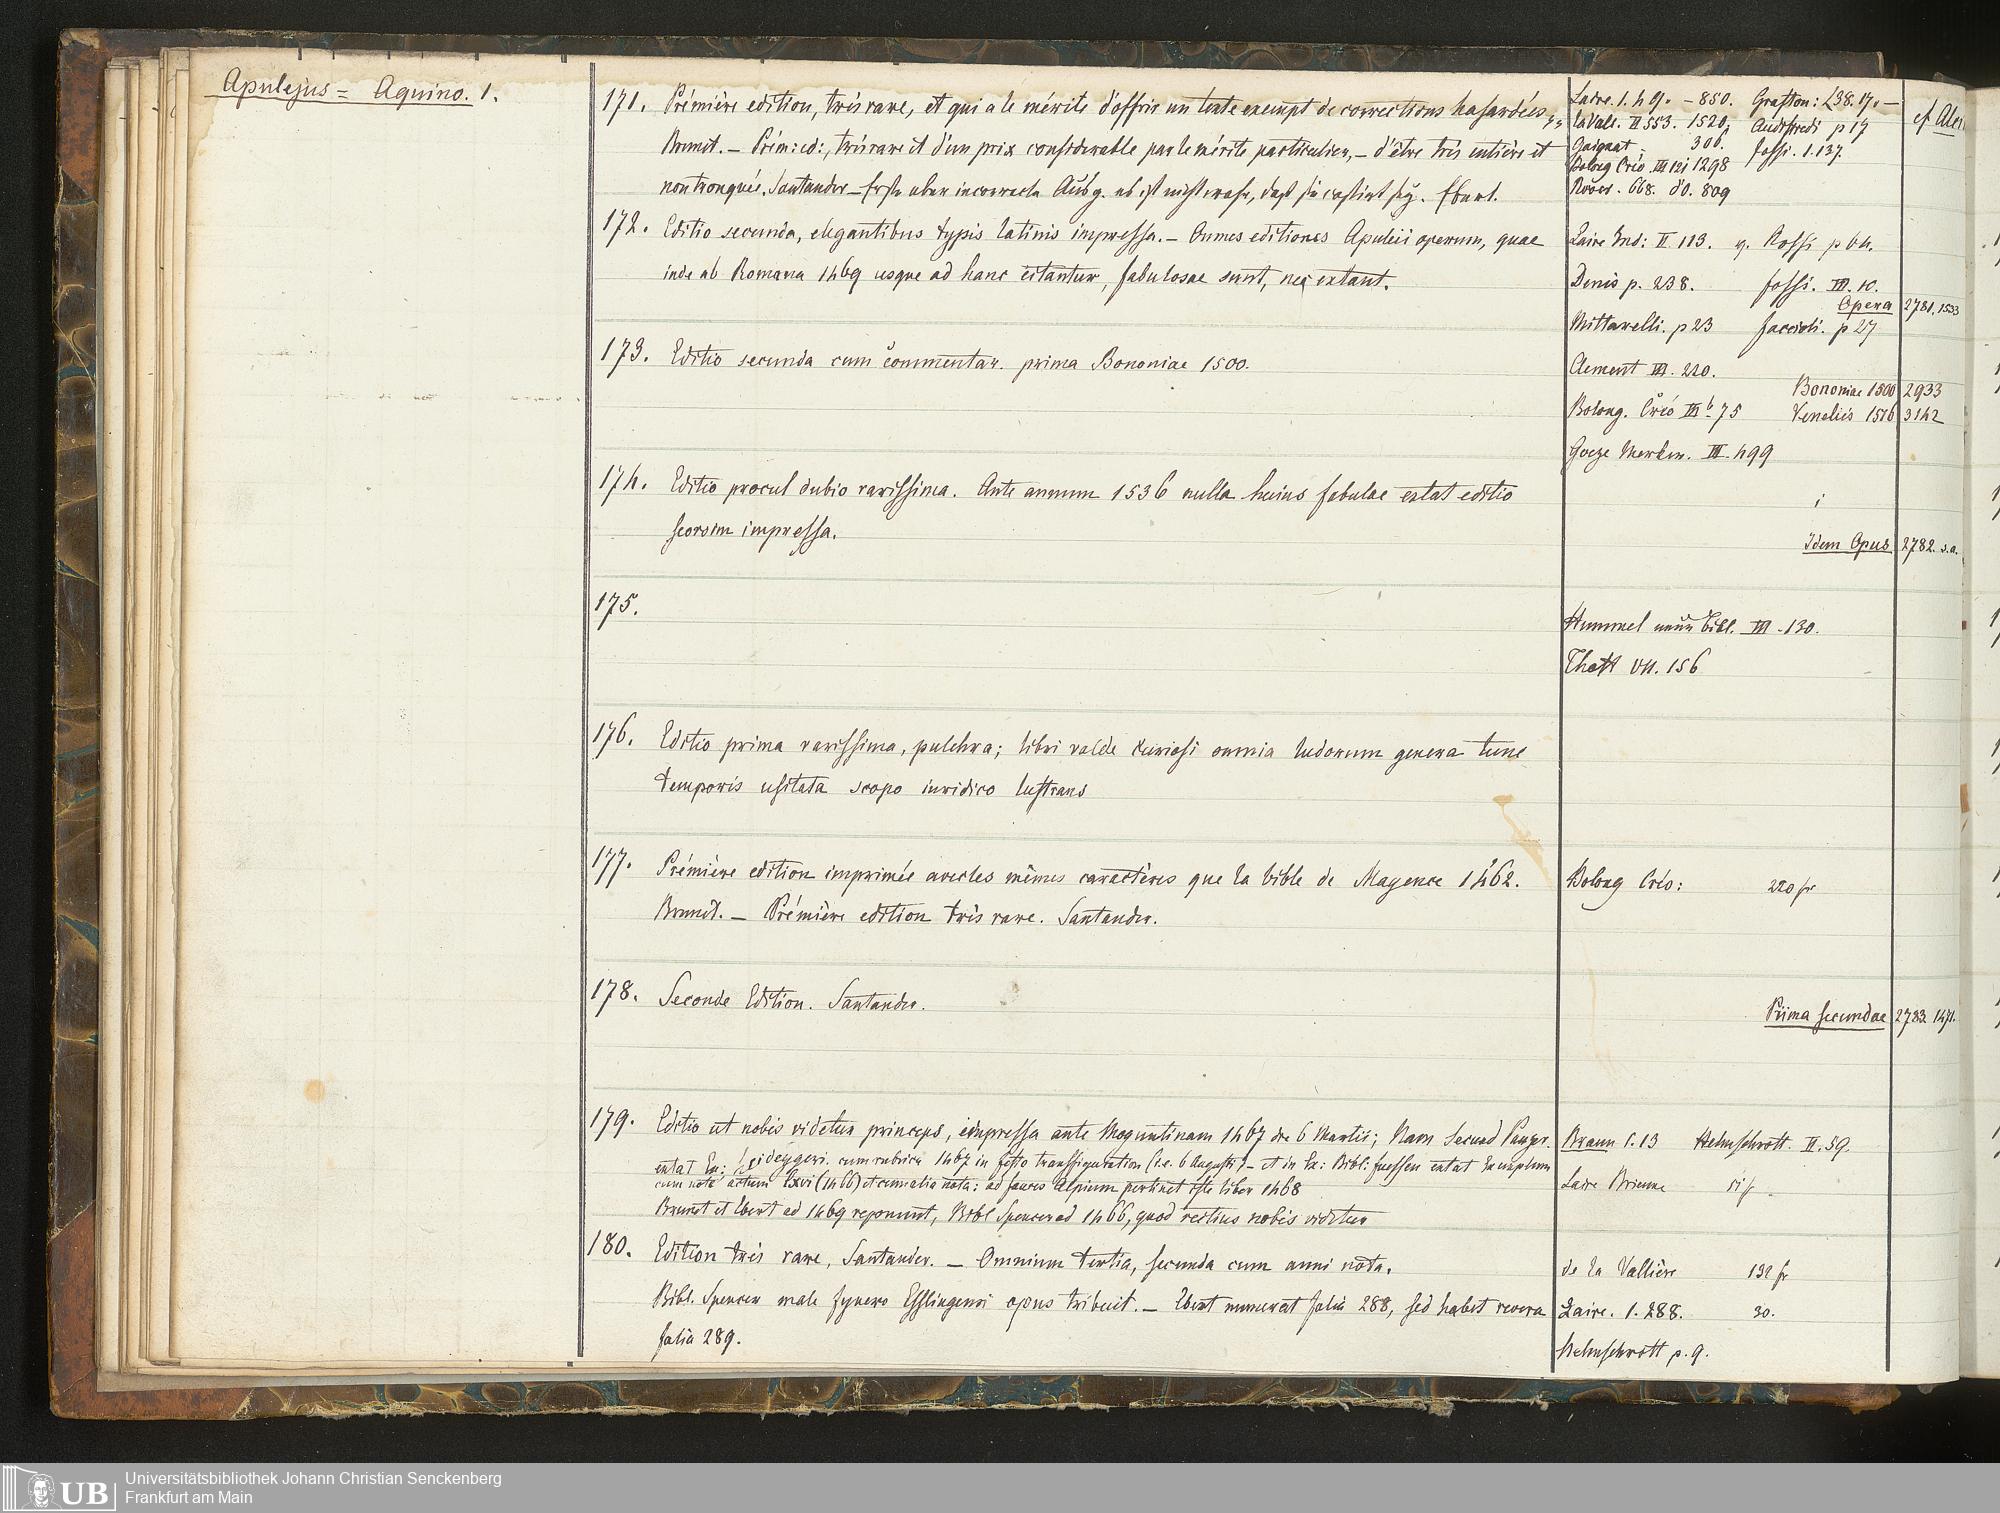 Apulejus = Aquino. 1.
171. Prémière edition, très rare, et qui a le mérite d'offrir un texte exempt de corrections hasardées,
Brunet. — Prém: ed:, très rare et d'un prix considerable par le mérite particulier, — d'être très entière et
non tronquée. Santander — Erste aber incorrecte Ausg. ab ist nicht wahr, daß sie castirt sey. Ebert.
Laire. 1. 49. — 850. Grafton: £38.17. —
La Vall. II 553. 1520. Audifredi p 17
Gaignat — 300. Fossi. 1. 137.
Bolong Crev. III 121 1298
Röver. 668. d'o. 809
cf
172. Editio secunda, elegantibus typis latinis impressa. — Omnes editiones Apuleii operum, quae
inde ab Romana 1469 usque ad hanc citantur, fabulosae sunt, nec extant.
Laire Ind: II 113. q. Rossi p 64.
Denis p. 238. Fossi. III. 10.
Opera 2781. 1533
Mittarelli. p 23 Faccioli. p 27
173. Editio secunda cum commentar. prima Bononiae 1500.
Clement III. 220.
Bononiae 1500 2933
Bolong. Crev III b 75 Venetiis 1516 3142
Goeze Merkw. III. 499
174. Editio procul dubio rarissima. Ante annum 1536 nulla huius fabulae extat editio
seorsim impressa.
Idem Opus 2782. s.a.
175.
Hummel neue Bibl. III. 130.
Thott VII. 156
176. Editio prima rarissima, pulchra; libri valde curiosi omnia ludorum genera tunc
temporis usitata scopo iuridico lustrans
177. Prémière edition imprimée avec les mêmes caractères que la bible de Mayence 1462.
Brunet. — Prémière edition très rare. Santander.
Bolong Crev: 220 fr
178. Seconde Edition. Santander.
Prima secundae 2783. 1471.
179. Editio ut nobis videtur princeps, impressa ante Moguntinam 1467 die 6 Martii; Nam secund Panzer.
extat Ex: cum rubrica 1467 in festo transfiguration (i.e. 6 Augusti) — et in Ex: Bibl: Fuessen extat Exemplum
cum nota actum lxvi (1466) et cum alia nota: ad fauces Alpium pertinet iste liber 1468
Brunet et Ebert ad 1469 reponunt, Bibl Spencer ad 1466, quod rectius nobis videtur
Braun 1. 13 Helmschrott. II. 59.
Laire Brienne 51 f
180. Edition très rare, Santander. — Omnium tertia, secunda cum anni nota.
Bibl. Spencer male Fynero Esslingensi opus tribuit. — Ebert numerat folia 288, sed habet revera
folia 289.
de la Vallière 132 fr
Laire. 1. 288. 30.
Helmschrott p. 9.
UB
Universitätsbibliothek Johann Christian Senckenberg
Frankfurt am Main